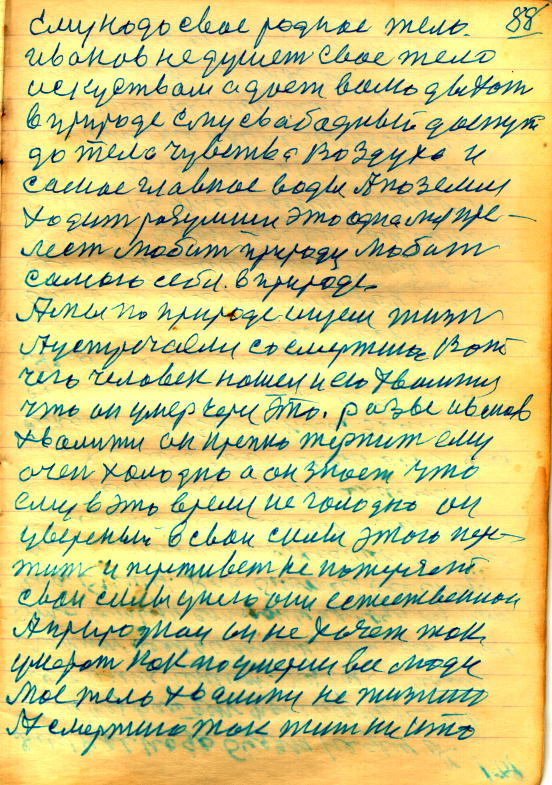 88
ему надо свое родное тело.
иванов не душит свое тело
искуством а дает ва
в природе ему свабадный доступ
до тела чувства воздуха и
самое главное воды А по земли
ходит разумши это одна пре-
лест любит природу любит
самого себя. в природе.
А мы по природе ищем жизн
А устречаем со смертию Вот
чего человек нашел и его хвалит
что он умер чери это. разве иванов
хвалит он крепко терпит ему
очен холодно а он знает что
ему в это время не голодно он
увереный в свои силы этого пере-
жит и переживет не потеряет
свои силы у него они естественнои
А природнаи он не хочет так
умерат как поумерли все люди
мое тело хвалит не жизнию
А смертию так жит ни кто